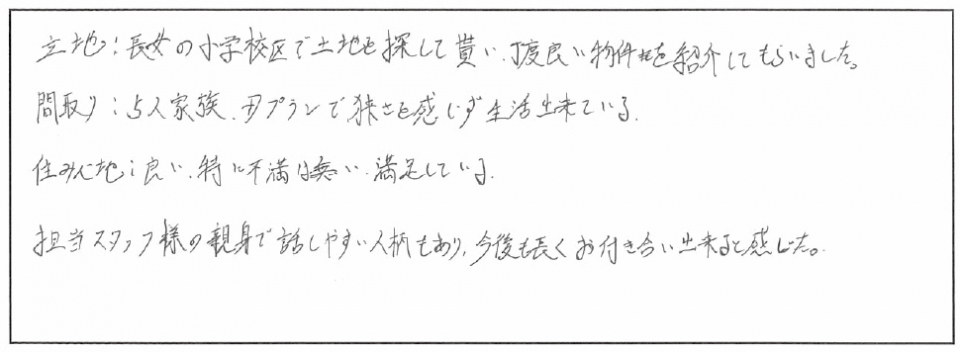 立地：長女の小学校区で土地を探して貰い、丁度良い物件を紹介してもらいました。
間取り：5人家族、プランで狭さを感じず生活出来ている。
住み心地：良い、特に不満は無い、満足している。
担当スタッフ様の親身で話しやすい人柄もあり、今後も長くお付き合い出来ると感じた。